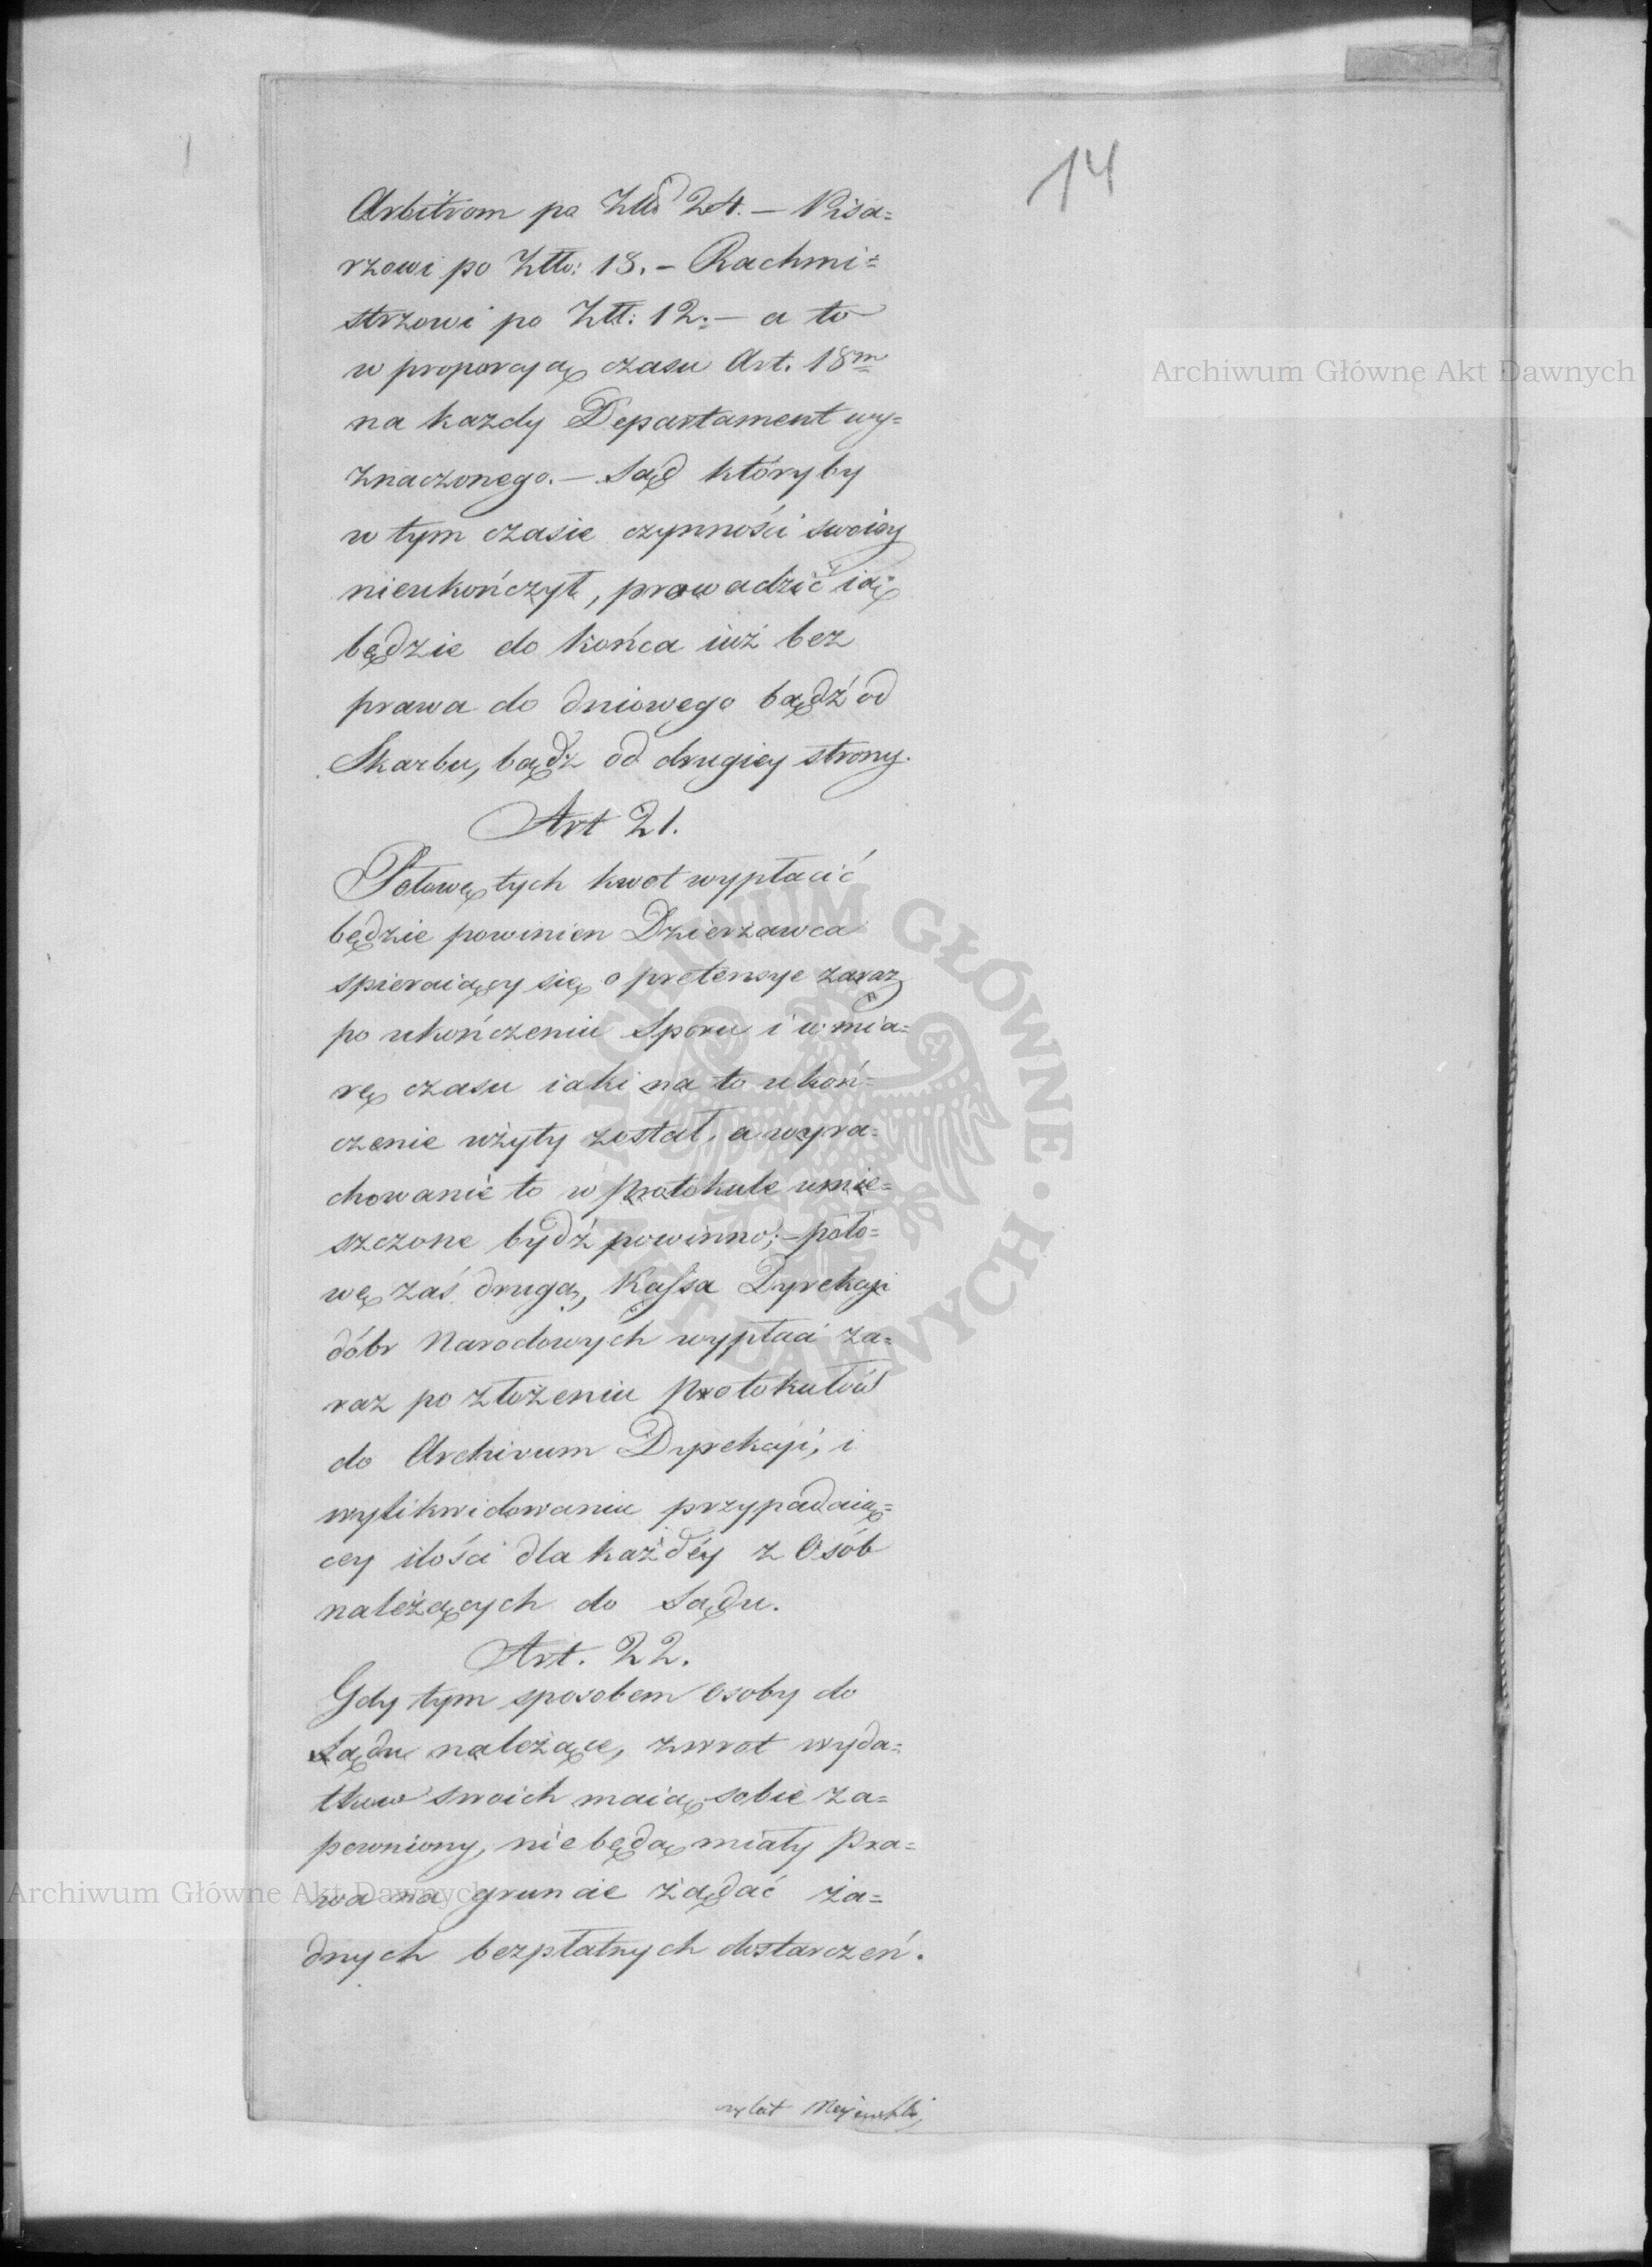 14
Arbitrom po Złłd 24. — Pisa=
rzowi po Złło: 18. — Rachmi=
strzowi po Złł: 12. — a to
w proporcyą czasu Art. 18m
na kazdy Departament wy=
znaczonego. — Sąd któryby
w tym czasie czynności swoiey
nieukończył, prowadzić ią
będzie do końca iuż bez
prawa do dniowego bądź od
Skarbu, bądź od drugiey strony.
Art 21.
Połowę tych kwot wypłacić
będzie powinien Dzierżawca
spieraiący się o pretensye zaraz
po ukończeniu Sporu i w mia=
rę czasu iaki na to ukoń=
czenie użyty został, a wyra=
chowanie to w protokule umie=
szczone bydź powinno; — poło=
wę zaś drugą, Kassa Dyrekcyi
dóbr Narodowych wypłaci za=
raz po złożeniu Protokułów
do Archivum Dyrekcyi, i
wylikwidowaniu przypadaią=
cey ilości dla każdéy z Osób
należących do Sądu.
Art. 22.
Gdy tym sposobem Osoby do
Sądu należące, zwrot wyda=
tkow swoich maią sobie za=
pewniony, nie będą miały Pra=
wa na gruncie żądać ża=
dnych bezpłatnych dostarczeń.
Majewski
Archiwum Główne Akt Dawnych
ARCHIWUM GŁÓWNE AKT DAWNYCH
Archiwum Główne Akt Dawnych